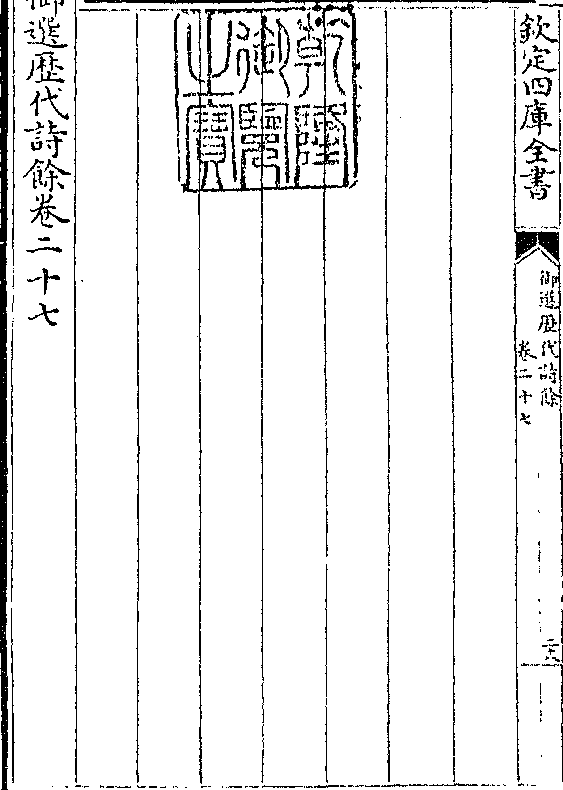 欽定四庫全書
御選歷代詩餘
卷二十七
乾隆御覽之寶
御選歷代詩餘卷二十七